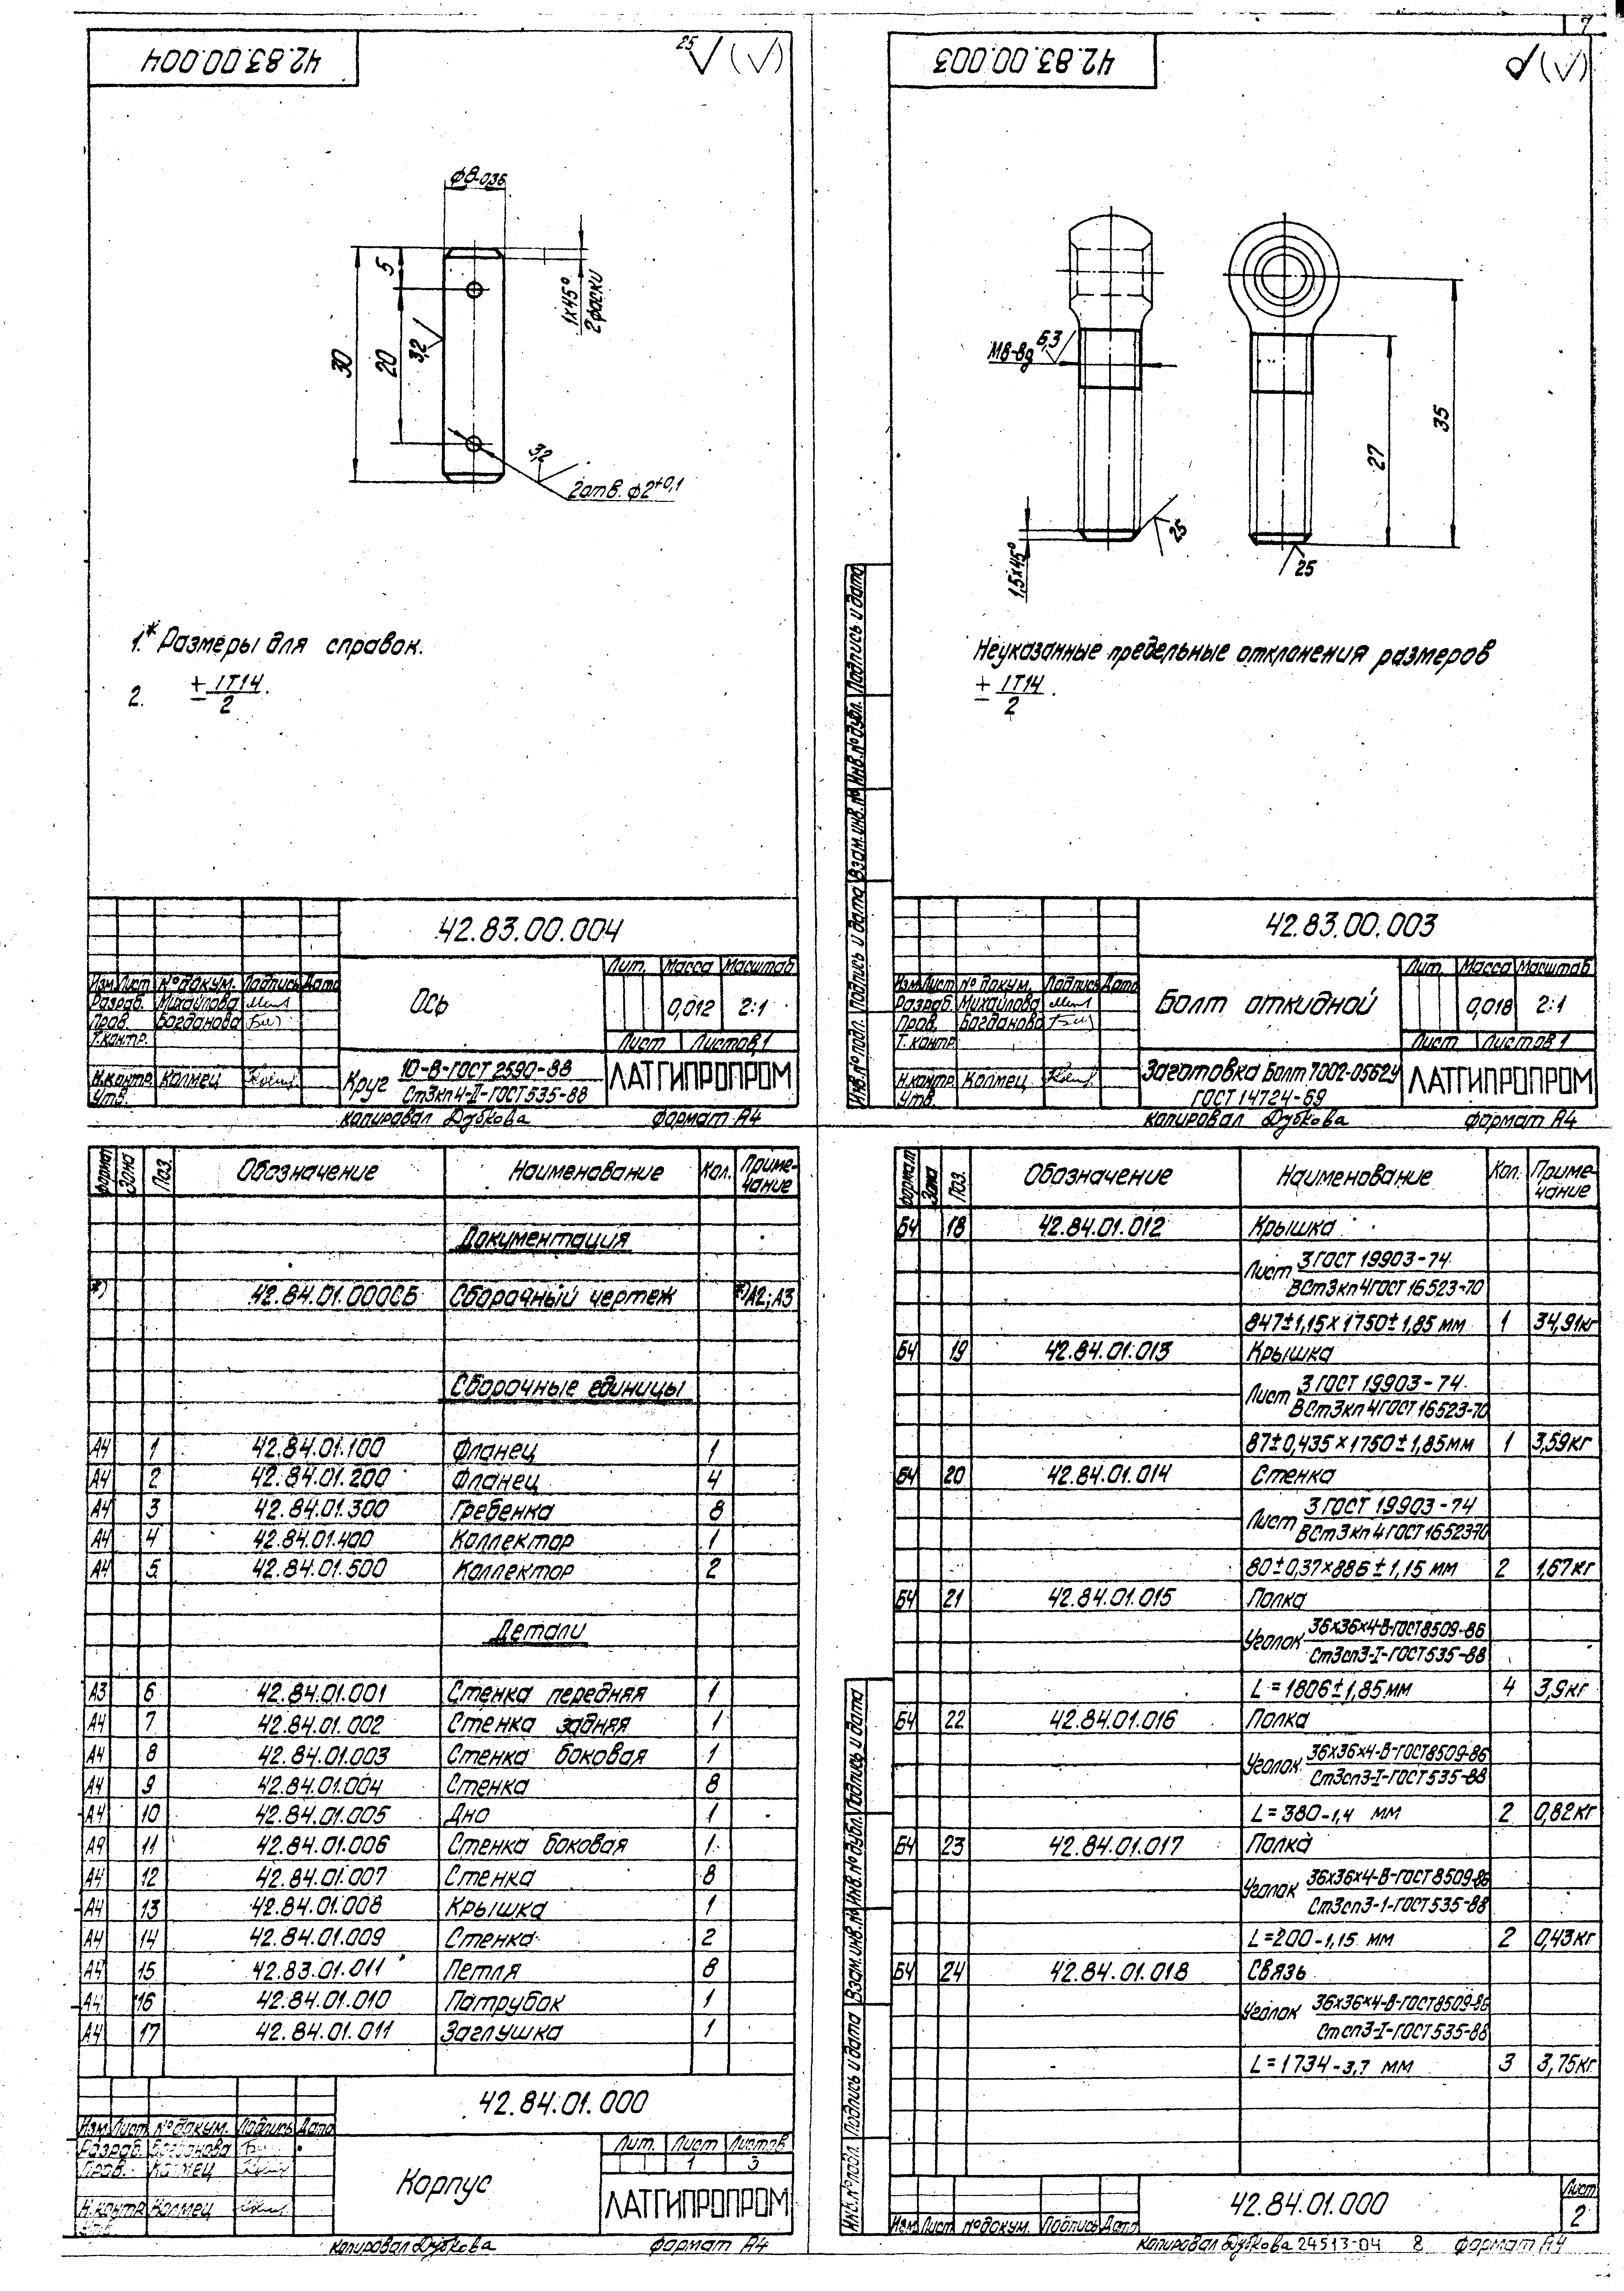 7
42.83.00.004
25 (√)
ϕ8-0,36
5
1×45°
2 фаски
30
20
3,2
3,2
2отв. ϕ2+0,1
1.* Размеры для справок.
2. ± IT14/2.
42.83.00.004
Изм Лист № докум. Подпись Дата
Разраб. Михайлова
Пров. Богданова
Т.контр.
Н.контр. Колмец
Утв.
Ось
Лит. Масса Масштаб
0,012 2:1
Лист Листов 1
Круг 10-В-ГОСТ 2590-88
Ст3кп4-II-ГОСТ 535-88
ЛАТГИПРОПРОМ
копировал Дубкова формат А4
42.83.00.003
(√)
М8-8g
6,3
35
27
25
1,5×45°
25
Неуказанные предельные отклонения размеров
± IT14/2.
Инв.№ подл. Подпись и дата Взам.инв.№ Инв.№ дубл. Подпись и дата
42.83.00.003
Изм Лист № докум. Подпись Дата
Разраб. Михайлова
Пров. Богданова
Т.контр.
Н.контр. Колмец
Утв.
Болт откидной
Лит. Масса Масштаб
0,018 2:1
Лист Листов 1
Заготовка Болт 7002-0562У
ГОСТ 14724-69
ЛАТГИПРОПРОМ
копировал Дубкова формат А4
формат Зона Поз. Обозначение Наименование Кол. Примечание
Документация
*) 42.84.01.000СБ Сборочный чертеж *)А2;А3
Сборочные единицы
А4 1 42.84.01.100 Фланец 1
А4 2 42.84.01.200 Фланец 4
А4 3 42.84.01.300 Гребенка 8
А4 4 42.84.01.400 Коллектор 1
А4 5 42.84.01.500 Коллектор 2
Детали
А3 6 42.84.01.001 Стенка передняя 1
А4 7 42.84.01.002 Стенка задняя 1
А4 8 42.84.01.003 Стенка боковая 1
А4 9 42.84.01.004 Стенка 8
А4 10 42.84.01.005 Дно 1
А4 11 42.84.01.006 Стенка боковая 1
А4 12 42.84.01.007 Стенка 8
А4 13 42.84.01.008 Крышка 1
А4 14 42.84.01.009 Стенка 2
А4 15 42.83.01.011 Петля 8
А4 16 42.84.01.010 Патрубок 1
А4 17 42.84.01.011 Заглушка 1
42.84.01.000
Изм Лист № докум. Подпись Дата
Разраб. Богданова
Пров. Колмец
Н.контр Колмец
Утв.
Корпус
Лит. Лист Листов
1 3
ЛАТГИПРОПРОМ
копировал Дубкова формат А4
формат Зона Поз. Обозначение Наименование Кол. Примечание
БЧ 18 42.84.01.012 Крышка
Лист 3 ГОСТ 19903-74
ВСт3кп4ГОСТ 16523-70
847±1,15×1750±1,85 мм 1 34,91кг
БЧ 19 42.84.01.013 Крышка
Лист 3 ГОСТ 19903-74
ВСт3кп4ГОСТ 16523-70
87±0,435×1750±1,85мм 1 3,59кг
БЧ 20 42.84.01.014 Стенка
Лист 3 ГОСТ 19903-74
ВСт3кп4ГОСТ 16523-70
80±0,37×886±1,15 мм 2 1,67кг
БЧ 21 42.84.01.015 Полка
Уголок 36×36×4-В-ГОСТ8509-86
Ст3сп3-I-ГОСТ535-88
L=1806±1,85мм 4 3,9кг
БЧ 22 42.84.01.016 Полка
Уголок 36×36×4-В-ГОСТ8509-86
Ст3сп3-I-ГОСТ535-88
L=380-1,4 мм 2 0,82кг
БЧ 23 42.84.01.017 Полка
Уголок 36×36×4-В-ГОСТ8509-86
Ст3сп3-1-ГОСТ535-88
L=200-1,15 мм 2 0,43кг
БЧ 24 42.84.01.018 Связь
Уголок 36×36×4-В-ГОСТ8509-86
Ст сп3-I-ГОСТ535-88
L=1734-3,7 мм 3 3,75кг
Инв.№ подл. Подпись и дата Взам.инв.№ Инв.№ дубл. Подпись и дата
Изм Лист № докум. Подпись Дата
42.84.01.000
Лист
2
копировал Дубкова 24513-04 8 формат А4